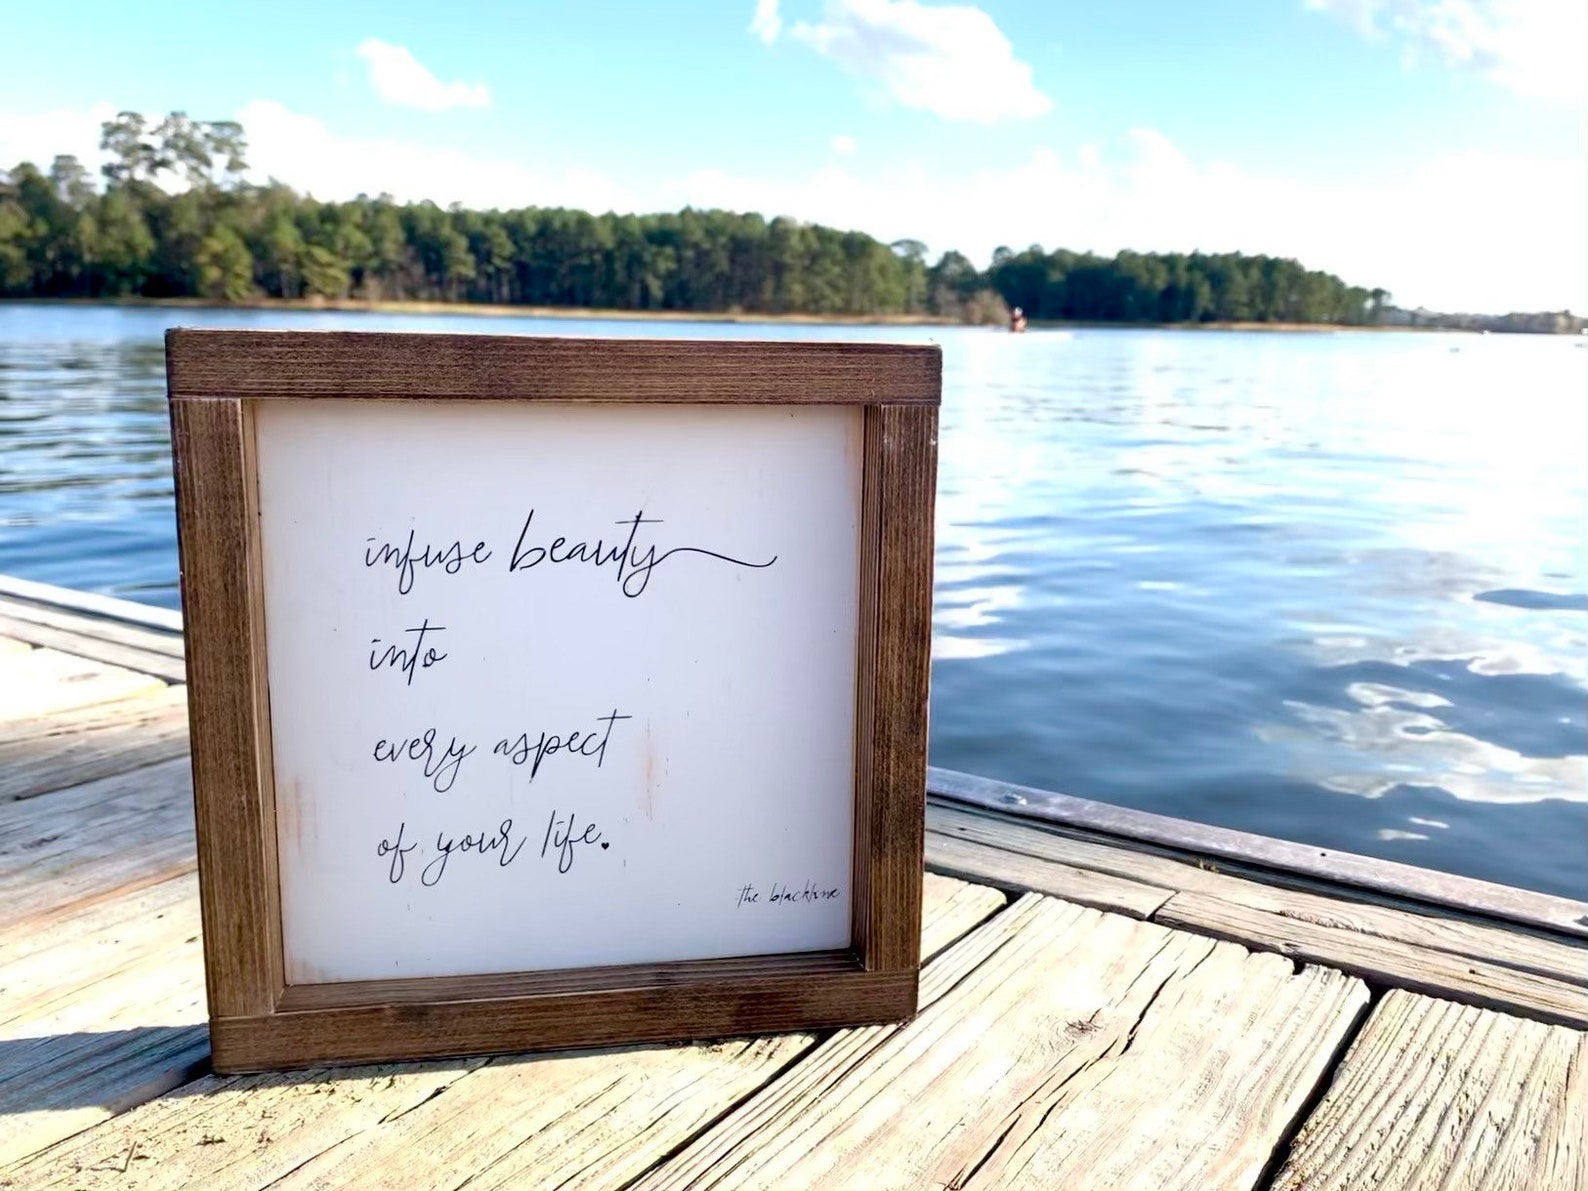 infuse beauty
into
every aspect
of your life.
the